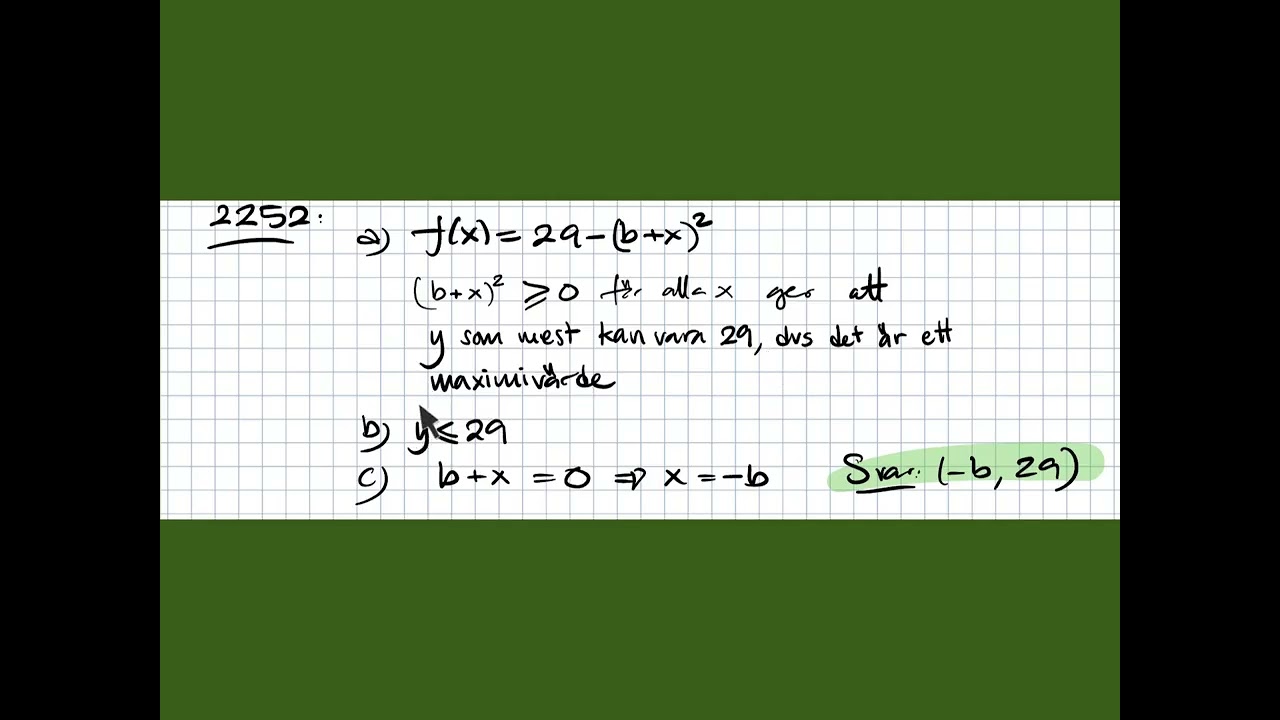 2252:
a) f(x) = 29 - (b+x)²
(b+x)² ⩾ 0 för alla x ger att
y som mest kan vara 29, dvs det är ett
maximivärde
b) y ⩽ 29
c) b+x = 0 ⇒ x = -b
Svar: (-b, 29)